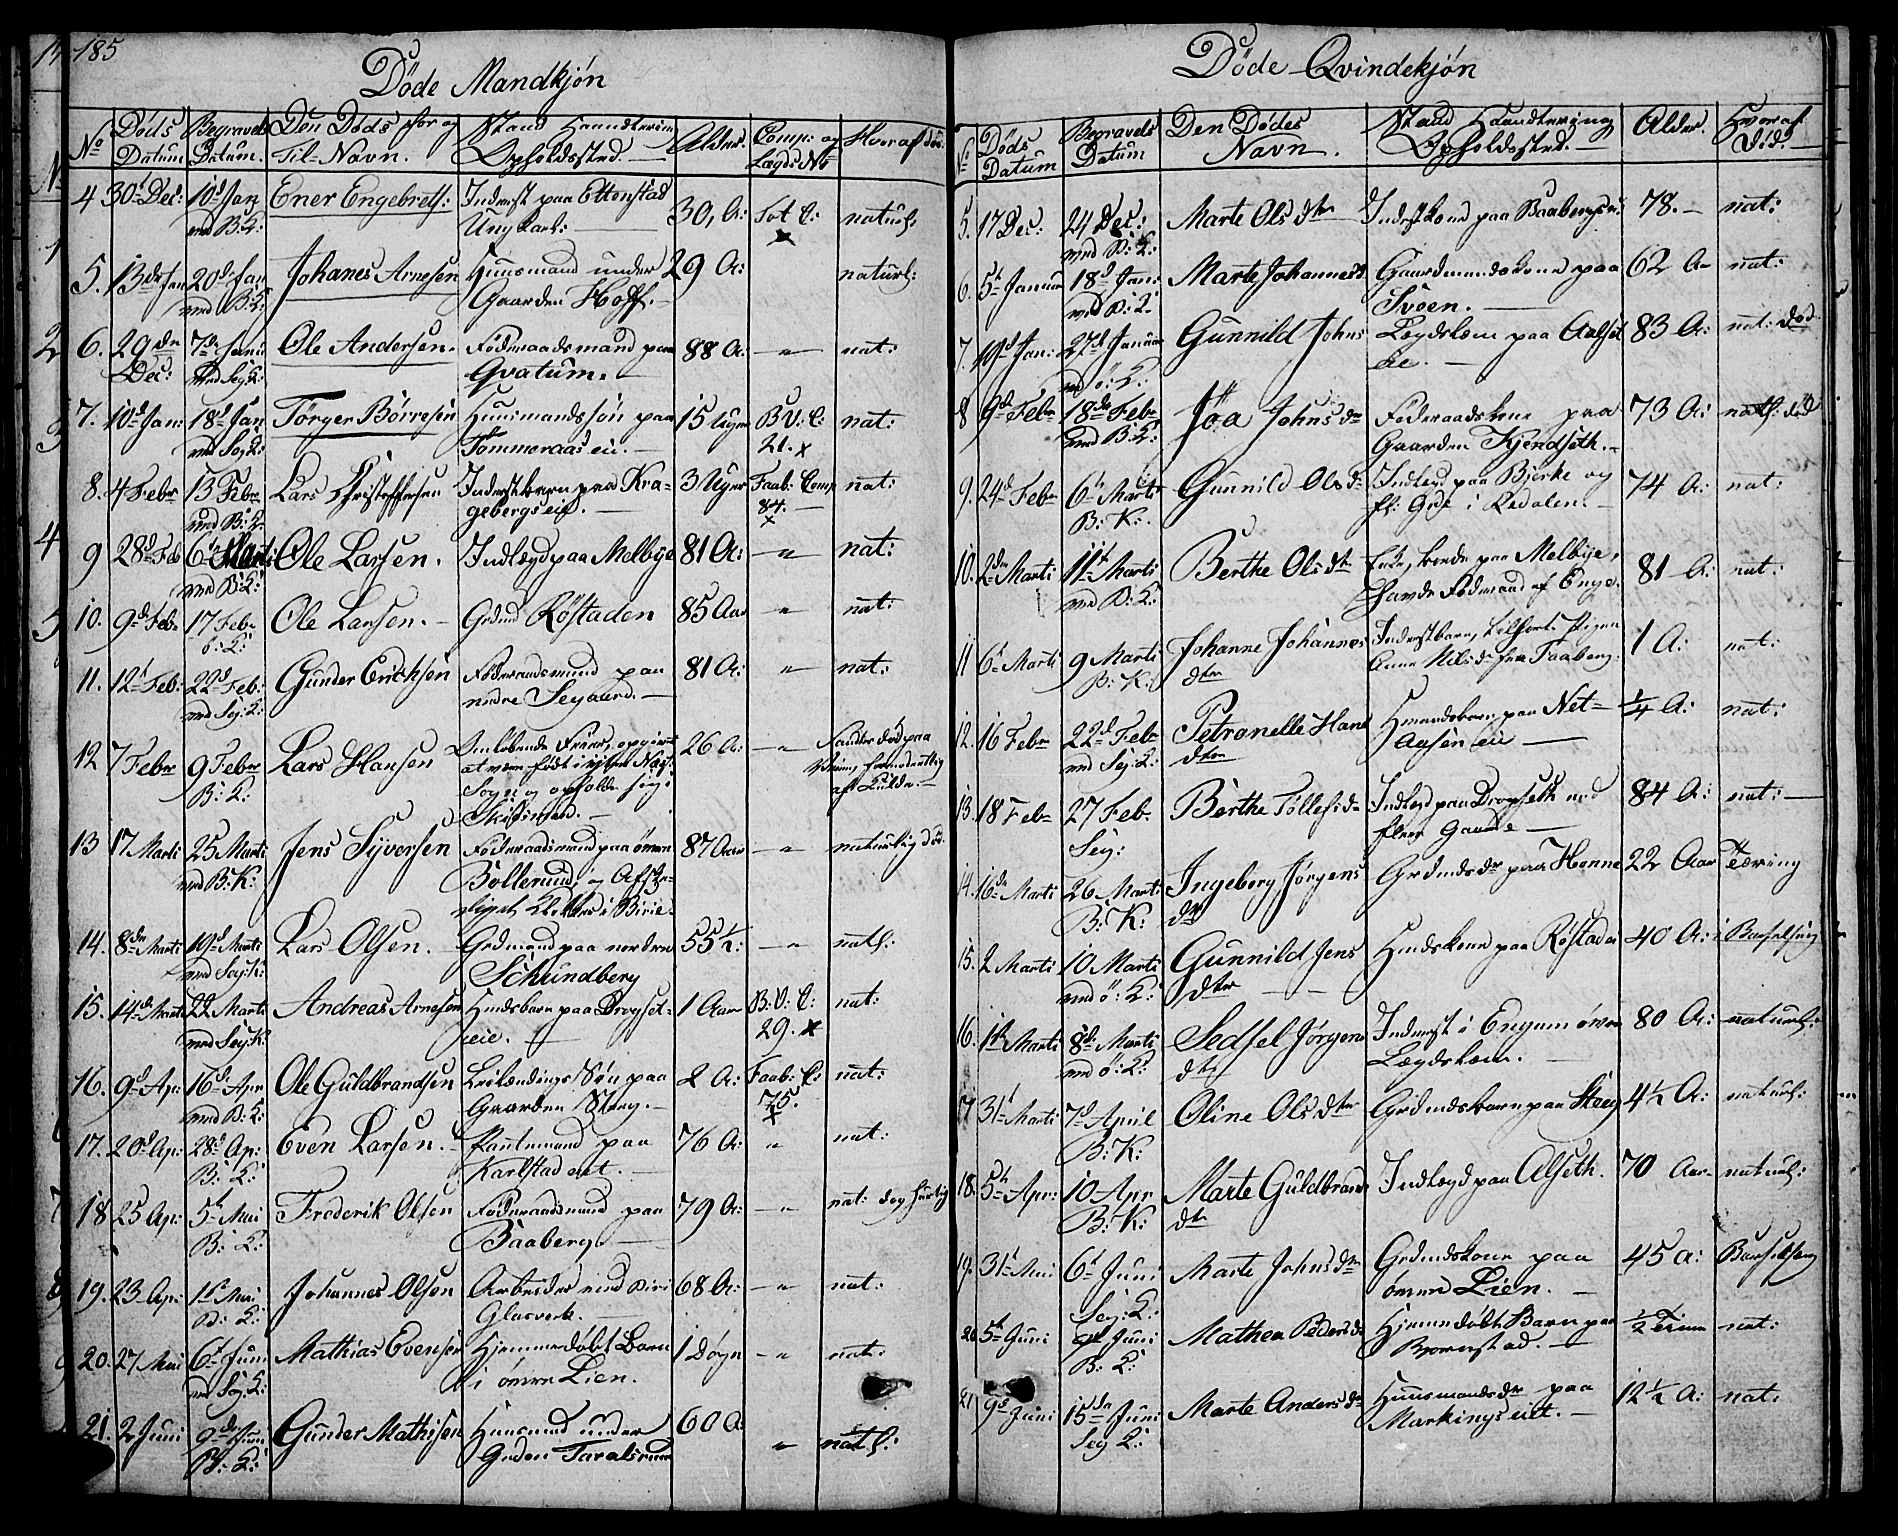 185
Döde Mandkjön
No Döds Datum Begravels Datum. Den Döds For og Til-Navn. Stand Haandtering Opholdssted. Alder. Comp: og Lagds No Hvoraf död.
4 30t Dec: 10d Jan med B: K: Ener Engebrets: Inderst paa Ettenstad Ungkarl: 30, A: Tot C: x naturl:
5. 13de Jan 20d Jan med B: K: Johanes Arnesen Huusmand under Gaarden Hoff. 29 A: naturl:
6. 29de Dec: 7de Jan: med Seg: K: Ole Andersen. Föderaadsmand paa Qvatum. 88 A: — " nat:
7. 10d Jan: 18d Jan med Seg K: Törger Börresen Huusmandssön paa Tommeraas eie. 15 Uger B: V: C: 21. x nat:
8. 4 Febr 13 Febr med B: K: Lars Christoffersen Inderstbarn paa Kragebergs eie. 3 Uger Faab: Comp 84. x nat:
9 28d Feb 6t Marti med B: K: Ole Larsen. Indlægd paa Melbye 81 A: — " nat:
10. 9d Feb. 17 Febr b: K: Ole Larsen. Grdmd Röstaden 85 Aar — " nat:
11. 12t Feb: 22d Feb: med Sej: K: Gunder Erichsen Föderaadsmand paa nedre Segaard. 81 A: " nat:
12 7 Febr 9 Febr B: K: Lars Hansen Omlöbende 26 A: — " död paa
13 17 Marti 25 Marti med B: K: Jens Syversen Föderaadsmand paa övre Böllerud, og i Birie. 87 Aar — " naturlig död.
14. 8de Marti 19d Marti med Seg: K: Lars Olsen. Grdmand paa nordre Schundberg 55 1/2: — " natl:
15. 14de Marti 22 Marti med Sej: K: Andreas Arnesen Hmdsbarn paa Dropset-eie. 1 Aar B: V: C: 29. x nat:
16. 9d Ap: 16d Apr med B: K: Ole Guldbrandsen Leilændings Sön paa Gaarden Steeg. 2 A: Faab: C: 75. x nat:
17. 20d Ap: 28d Ap: B: K: Even Larsen. paa Karlstad eiet. 76 A: " nat:
18 25 Ap: 5t Mai B: K: Frederik Olsen Föderaadsmand paa Baaberg. 79 A: — " nat: dog hurtig
19. 23 Ap: 1t Mai B: K: Johannes Olsen Arbeider ved Biri Glasverk. 68 A: — " nat:
20. 27 Mai 6t Juni med Sej: K: Mathias Evensen Hjemmedöbt Barn i övre Lien. 1 Dögn — " nat:
21. 2 Juni 9de Juni B: K: Gunder Mathisen Huusmd under Grden Taralsrud 60 A " natl:
Döde Qvindekjön
No Döds Datum Begravels Datum Den Dödes Navn. Stand Haandtering Opholdssted. Alder. Hvoraf Död.
5. 17 Dec: 24 Dec: med B: K: Marte Ols dter Inderstkone paa Baabergs ei: 78. nat:
6. 5t Januar 18d Jan: med B: K: Marte Johannesd. Gaardmandskone paa Sveen. 62 A nat:
7. 19d Jan: 27de Januar med ö: K: Gunnild Johns Lægdslem paa Aalset eie. 83 A: nat: död.
8 9de Febr 18de Febr med B: K: Jöa Johnsdr Föderaadskone paa Gaarden Kjendseth. 73 A: natl: död
9. 24d Febr 6t Marti B: K: Gunnild Olsdr Indlægd paa Bjerke og fl: Grde i Redalen. 74 A: nat:
10. 2de Marti 11t Marti med B: K: Berthe Olsdter Enke, boede paa Melbye, havde Föderaad af Enge. 81 A: nat:
11 6t Marti 9 Marti B: K: Johanne Johannes dter Inderstbarn, tilhört Pigen Anne Nilsdr fra Faaberg. 1 A: nat:
12. 16 Febr 22d Febr med Sej: K: Petronelle Hans dter Hmandsbarn paa Net-Aasen eie 1/4 A: nat:
13. 18 Feb. 27 Feb. Sej: Berthe Tollefsdr Indlægd paa Dropseth med flere Gaarde 84 A: nat:
14. 16de Marti 26 Marti B: K: Ingeborg Jörgens dr Grdmdsdr paa Honne 22 Aar Tæring
15. 2 Marti 10 Marti med ö: K: Gunnild Jens dter Hmdskone paa Röstad ei 40 A: i Barselseng
16. 1t Marti 8de Marti med ö: K: Sedsel Jörgens dtr Inderst i Engum övre Lægdslem. 80 A: naturl:
17 31t Marti 7d April B: K: Oline Olsdter Grdmdsbarn paa Steeg 4 1/2 A: naturl:
18. 5t Apr: 10 Apr B: K: Marte Guldbrands dtr Indlægd paa Alseth. 70 Aar naturl:
19. 31t Mai 6t Juni Sej: K: Marte Johnsdtr Grdmdskone paa övre Lien. 45 A: Barselseng
20. 5t Juni Juni B: K: Mathea Pedersdr Hjemmedöbt Barn paa Bjørnstad. 1/2 Time nat:
21. 9de Juni 15de Juni Sej K: Marte Andersdr Huusmandsdr paa Markings eiet. 12 1/2 A: nat.